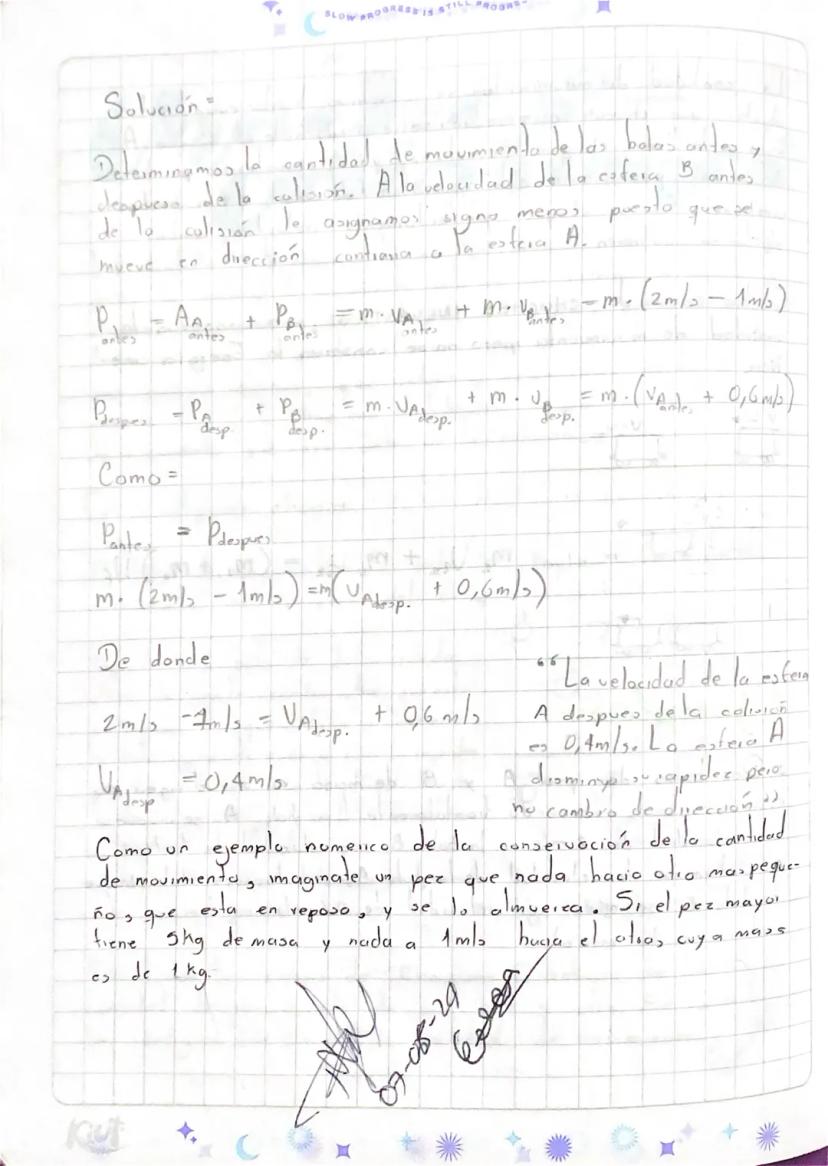 SLOW PROGRESS IS STILL PROGRE
Solución=
Determinamos la cantidad de movimiento de las bolas antes y
despues de la colisión. A la velocidad de la esfera B antes
de la colisión le asignamos signo menos puesto que se
mueve en dirección contraria a la esfera A.
P antes = A A antes + P B antes = m · V A antes + m · V B antes = m · (2m/s - 1m/s)
P despues = P A desp. + P B desp. = m · V A desp. + m · V B desp. = m · (V A antes + 0,6m/s)
Como =
P antes = P despues
m · (2m/s - 1m/s) = m (V A desp. + 0,6m/s)
De donde
2m/s - 1m/s = V A desp. + 0,6 m/s
V A desp = 0,4m/s
"La velocidad de la esfera
A despues de la colisión
es 0,4m/s. La esfera A
disminye su rapidez pero
no cambio de dirección"
Como un ejemplo numerico de la conservación de la cantidad
de movimiento, imaginate un pez que nada hacia otro mas peque-
ño, que esta en reposo, y se lo almuerza. Si el pez mayor
tiene 5kg de masa y nada a 1m/s hacia el otro, cuya masa
es de 1kg.
Kiut